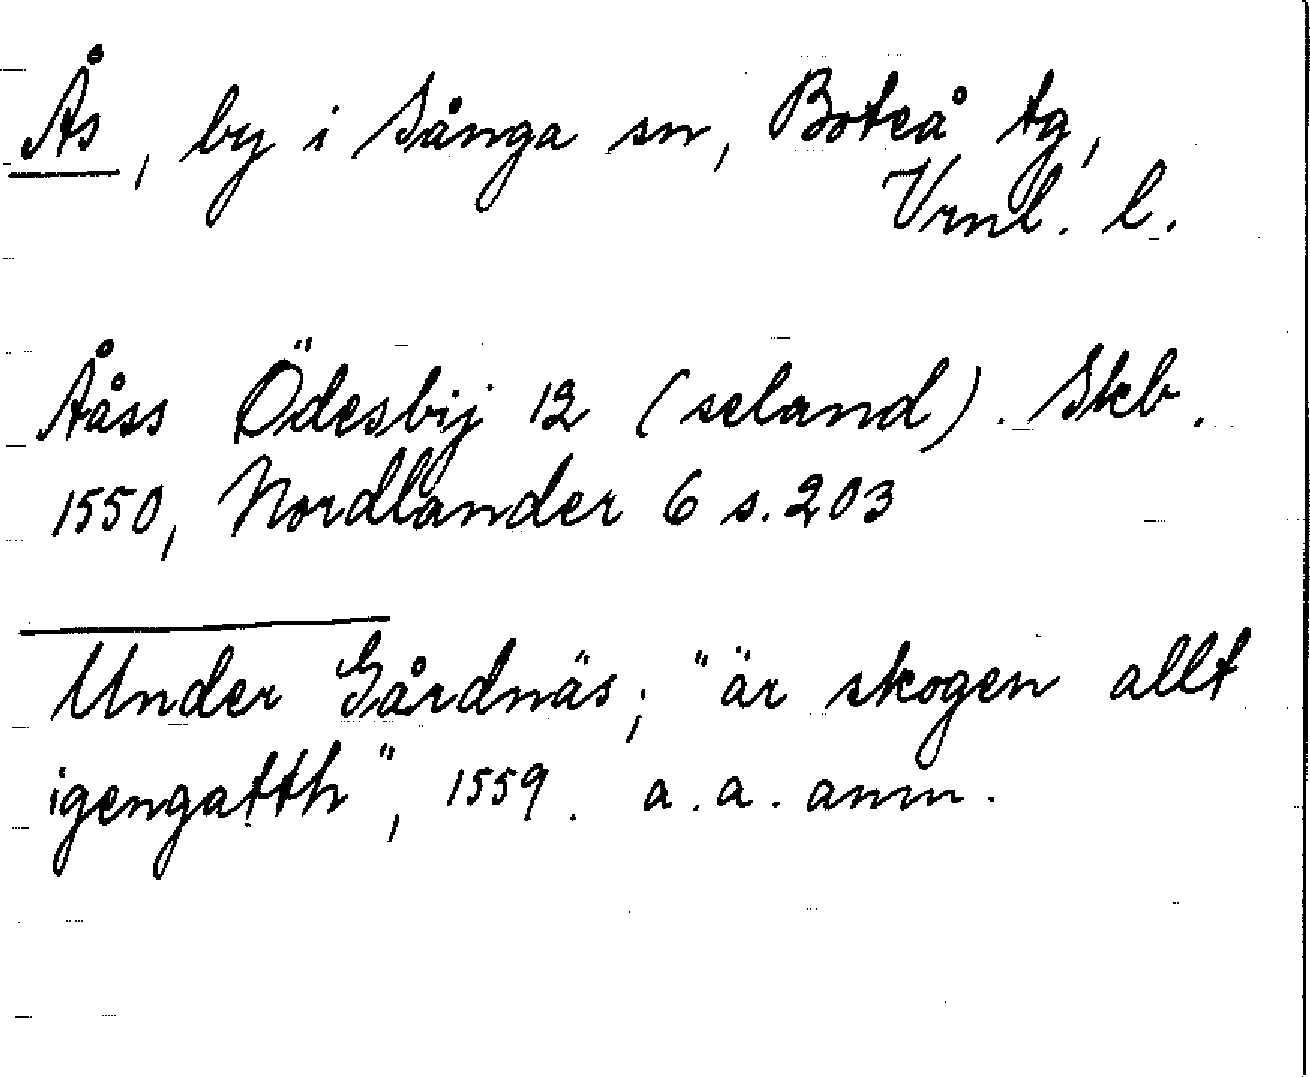 Ås, by i Sånga sn, Boteå tg,
Vrnl. l.
Ååss Ödesbij 12 (seland). Skb.
1550, Nordlander 6 s. 203
Under Gårdnäs; "är skogen allt
igengatth", 1559. a.a. anm.